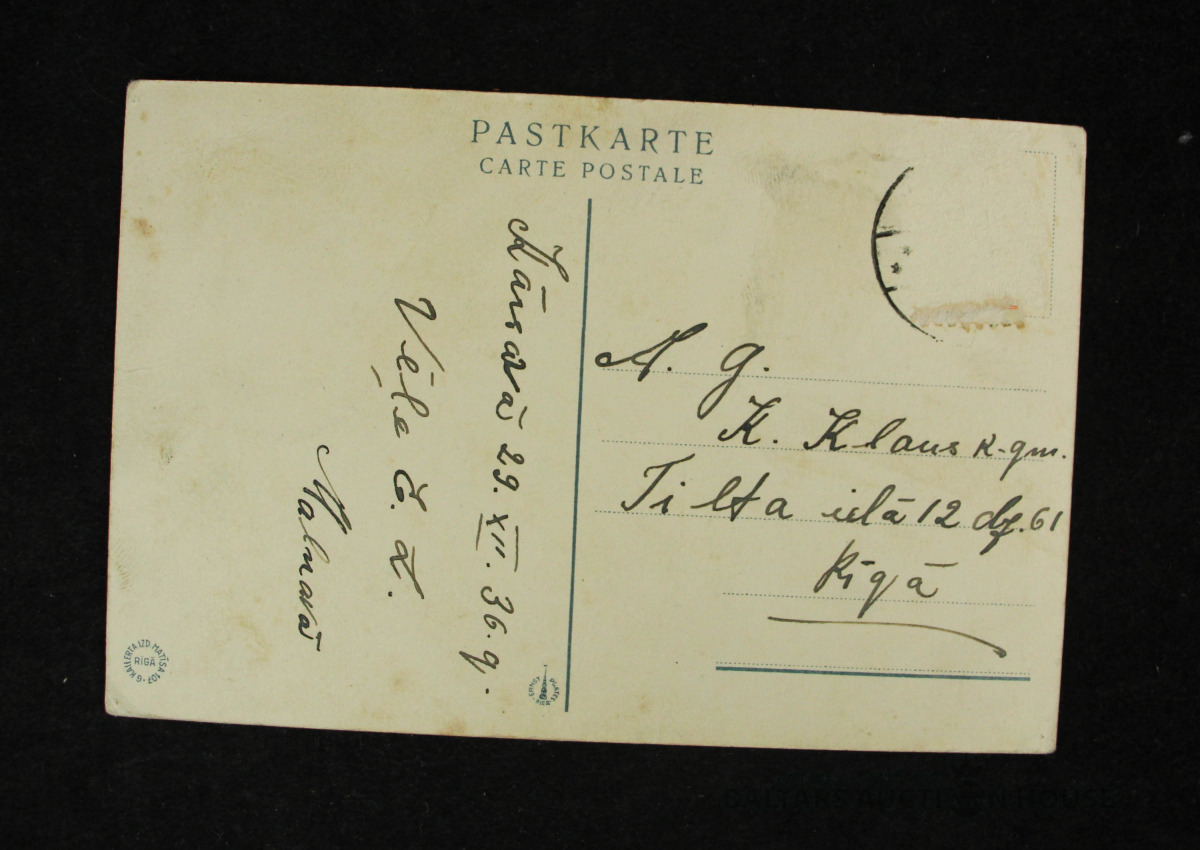 PASTKARTE
CARTE POSTALE
Kārsavā 29. XII. 36. g.
Vēl
Malnavā
A. G.
K. Klaus k-gm.
Tilta ielā 12 dz. 61
Rīgā
G. KALLERTA IZD. MATĪSA 107
RĪGĀ
ERNST PLATES
SALTARS AUCTION HOUSE